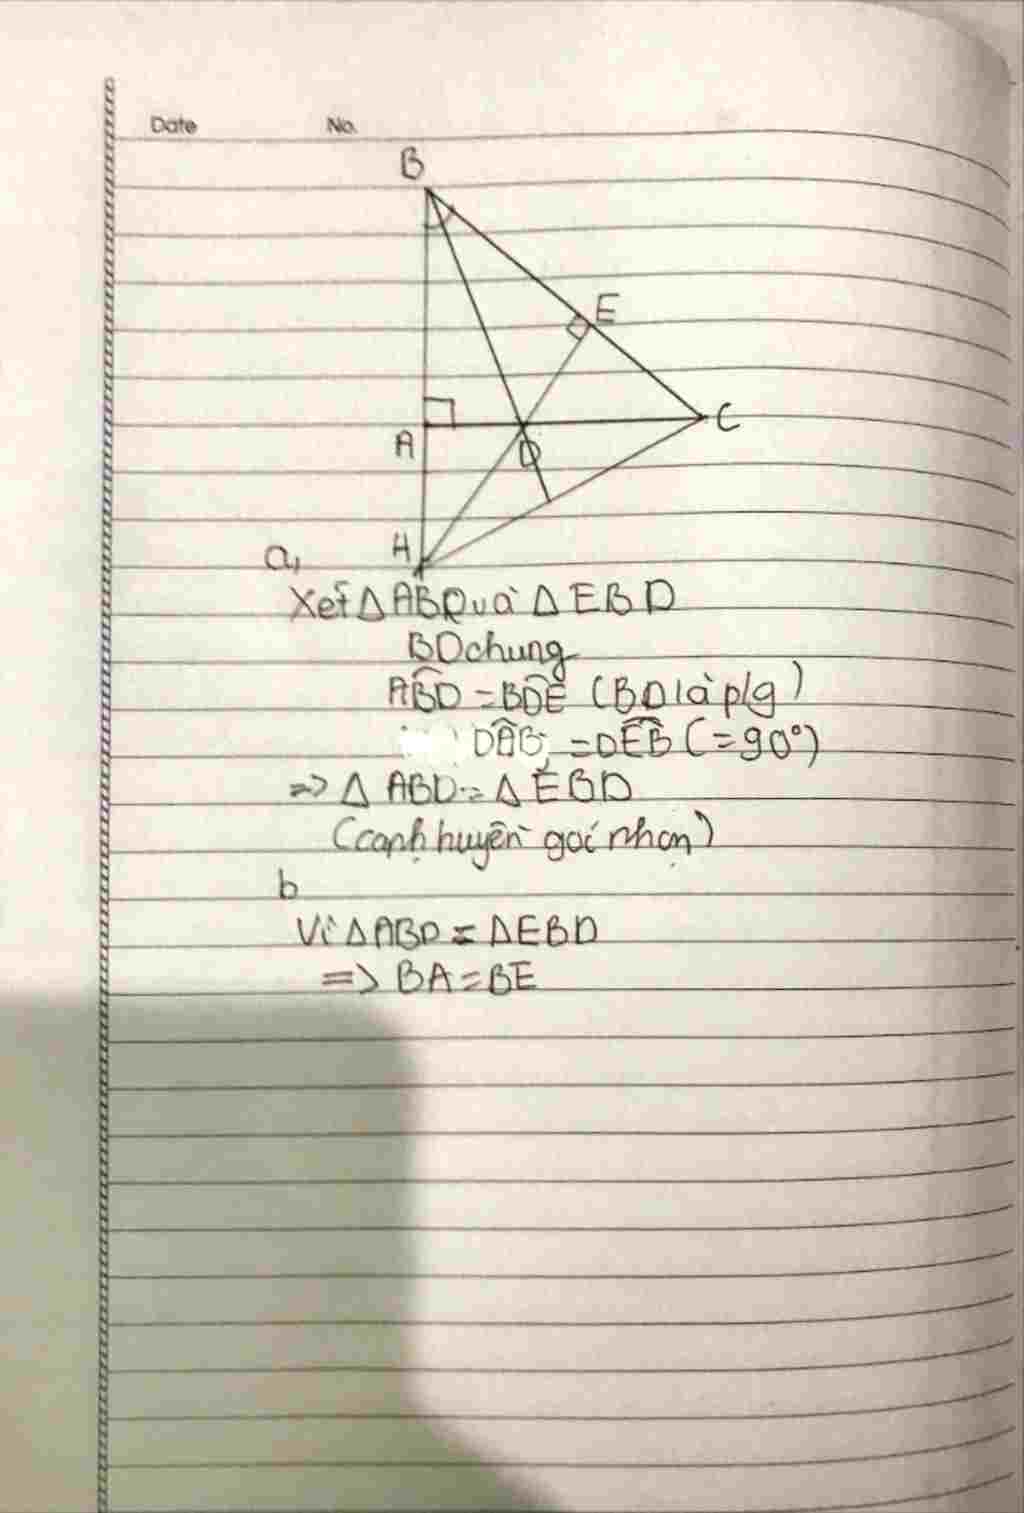 Date No.
B
E
C
A
D
H
a,
Xét △ ABD và △ EBD
BD chung
ABD = BDE (BD là p/g)
DAB = DEB (=90°)
=> △ ABD = △ EBD
(cạnh huyền goí nhọn)
b
Vì △ ABD = △ EBD
=> BA = BE